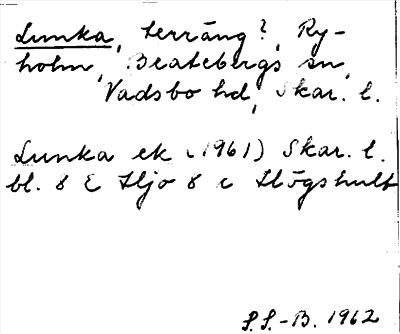 Lunka, terräng?, Ry-
holm, Beatebergs sn,
Vadsbo hd, Skar. l.
Lunka ek (1961) Skar. l.
bl. 8 E Hjo 8 c Högshult
S.S.-B. 1962